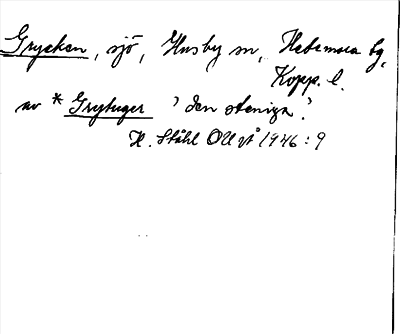 Grycken, sjö, Husby sn, Hedemora tg,
Kopp. l.
av * Grytuger 'den steniga'.
H. Ståhl Ollst 1946:9